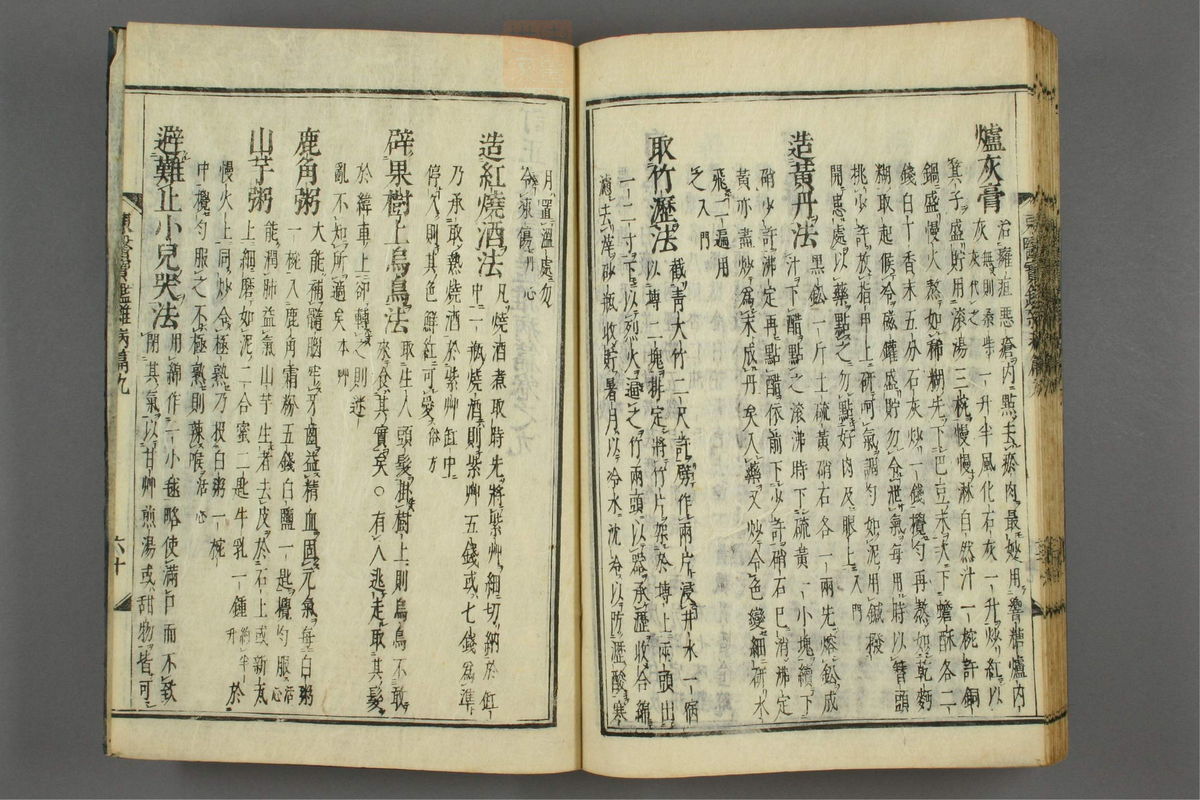 爐灰膏 治癰疽惡瘡內點去瘀肉最妙用響糖爐內
灰無則桑柴灰代之一升半風化石灰一升炒紅以
箕子盛貯用滾湯三椀慢慢淋自然汁一椀許銅
鍋盛慢火熬如稀糊先下巴豆末次下蟾酥各二
錢白丁香末五分石灰炒一錢攪勻再熬如乾麪
糊取起候冷磁鑵盛貯勿令泄氣每用時以簪頭
挑少許放指甲上硏呵氣調勻如泥用鍼撥
開患處以藥點之勿點好肉及眼上入門
造黃丹法 黑鉛一斤土硫黃硝石各一兩先熔鉛成
汁下醋點之滾沸時下硫黃一小塊續下
硝少許沸定再點醋依前下少許硝石已消沸定
黃亦盡炒爲末成丹矣入藥又炒令色變細硏水
飛二遍用
之入門
取竹瀝法 截靑大竹二尺許劈作兩片浸井水一宿
以塼二塊排定將竹片架於塼上兩頭出
一二寸下以烈火逼之竹兩頭以器承瀝收合綿
濾去滓砂瓶收貯暑月以冷水沈冷以防瀝酸寒
月置溫處勿
令凍傷丹心
造紅燒酒法 凡燒酒煮取時先將紫艸細切納於缸
中一瓶燒酒則紫艸五錢或七錢爲準
乃承取熱燒酒於紫艸缸中
停久則其色鮮紅可愛俗方
辟果樹上烏鳥法 取生人頭髮掛樹上則烏鳥不敢
來食其實矣○有人逃走取其髮
於緯車上却轉之則迷
亂不知所適矣本艸
鹿角粥 大能補髓腦堅牙齒益精血固元氣每白粥
一椀入鹿角霜粉五錢白鹽一匙攪勻服活心
山芋粥 能潤肺益氣山芋生者去皮於石上或新瓦
上細磨如泥二合蜜二匙牛乳一鍾約半升於
慢火上同炒令極熟乃投白粥一椀
中攪勻服之不極熟則辣喉活心
避難止小兒哭法 用綿作一小毬略使滿口而不致
閉其氣以甘艸煎湯或甜物皆可
東醫寶鑑雜病篇九
六十